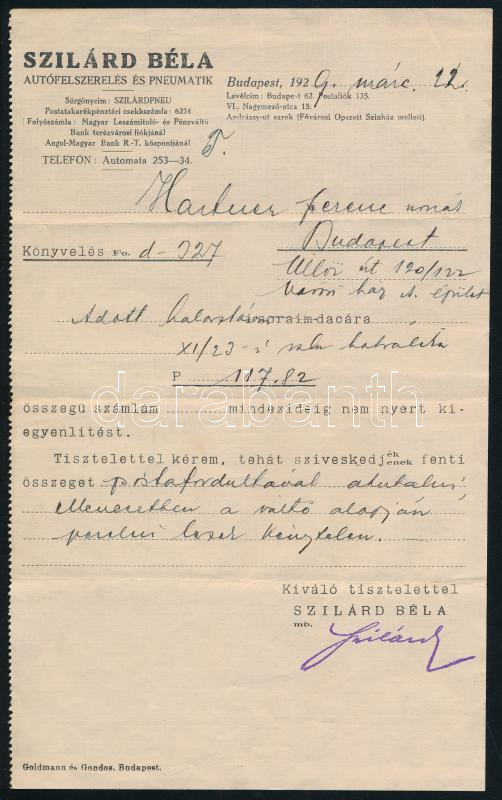 SZILÁRD BÉLA
AUTÓFELSZERELÉS ÉS PNEUMATIK
Sürgönycim: SZILÁRDPNEU
Postatakarékpénztári csekkszámla: 6274
Folyószámla: Magyar Leszámitoló- és Pénzváltó
Bank terézvárosi fiókjánál
Angol-Magyar Bank R.-T. központjánál
TELEFON: Automata 253—34.
Budapest, 1929. márc. 22.
Levélcim: Budapest 62. Postafiók 135.
VI., Nagymező-utca 15.
Andrássy-ut sarok (Fővárosi Operett Szinház mellett).
T.
Hartner Ferenc urnak
Budapest
Könyvelés Fo. d-327
Üllői út 120/122
Városi ház A. épület
Adott halasztás soraim dacára
XI/23-i
P 117.82
összegű számlám mindezideig nem nyert ki-
egyenlitést.
Tisztelettel kérem, tehát sziveskedjék/enek fenti
összeget postafordultával átutalni,
Ellenesetben a váltó alapján
perelni leszek kénytelen.
Kiváló tisztelettel
SZILÁRD BÉLA
mb.
Szilárd
Goldmann és Gondos, Budapest.
darabanth